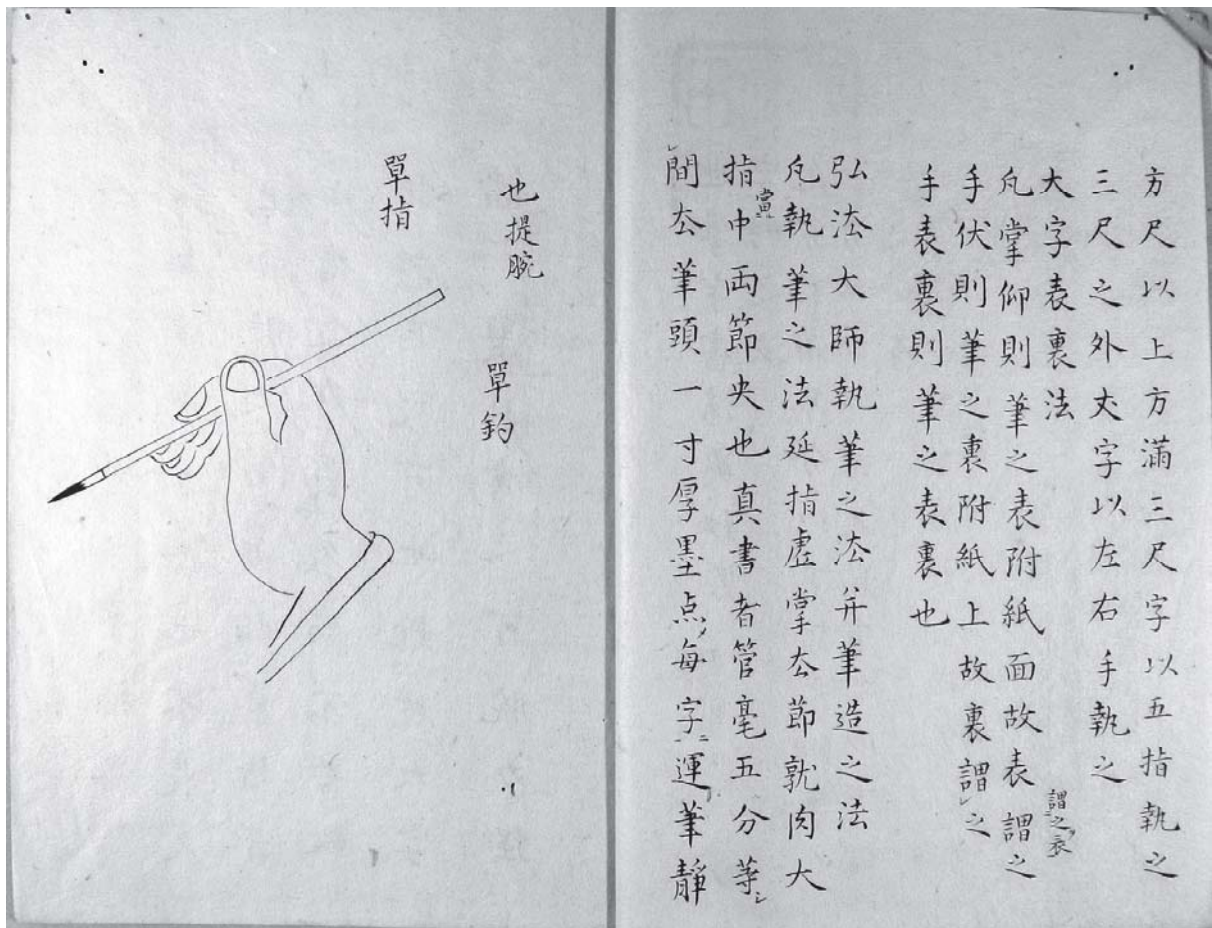 方尺以上方滿三尺字以五指執之
三尺之外丈字以左右手執之
大字表裏法
凢掌仰則筆之表附紙面故表謂之
謂之表
手伏則筆之裏附紙上故裏謂之
手表裏則筆之表裏也
弘法大師執筆之法并筆造之法
凢執筆之法延指虚掌厺節就肉大
指中両節央也真書者管毫五分等
當
間厺筆頭一寸厚墨点每字運筆静
也提腕
單鈎
單指